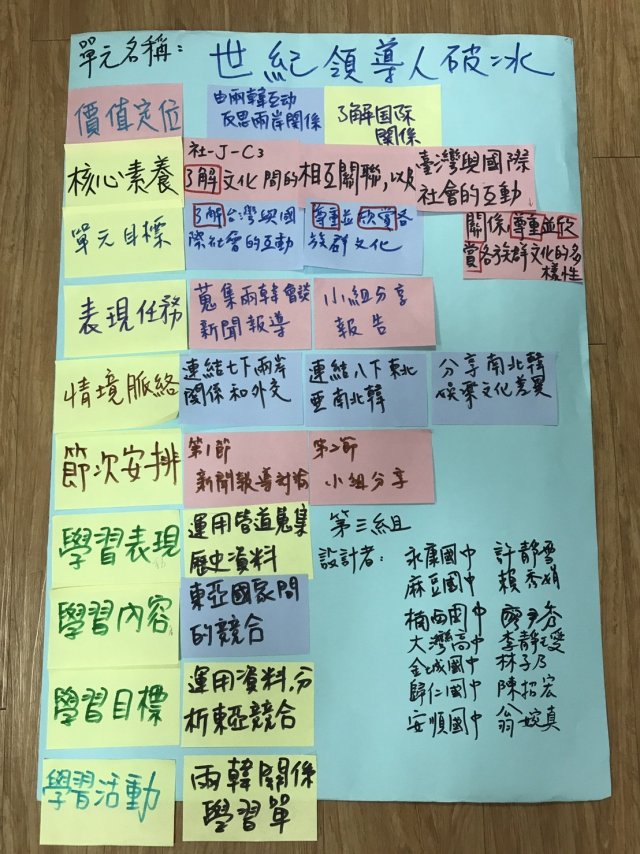 單元名稱：世紀領導人破冰
價值定位
由兩韓互动
反思兩岸關係
了解国际
關係
核心素養
社-J-C3
了解文化間的相互關聯，以及
臺灣與國際
社會的互動
關係，尊重並欣
賞各族群文化的多
樣性
單元目標
了解台灣與國
際社會的互動
尊重並欣賞各
族群文化
表現任務
蒐集兩韓會談
新聞報導
小組分享
報告
情境脈絡
連結七下兩岸
關係和外交
連結八下東北
亞南北韓
分享南北韓
娛樂文化差異
節次安排
第1節
新聞報導討論
第2節
小組分享
學習表現
運用管道蒐集
歷史資料
學習內容
東亞國家間
的競合
學習目標
運用資料，分
析東亞競合
學習活動
兩韓關係
學習單
第三組
設計者：永康國中 許靜雯
麻豆國中 賴秀娟
楠西國中
大灣高中
金城國中 林子乃
歸仁國中 陳招宏
安順國中 翁婉真